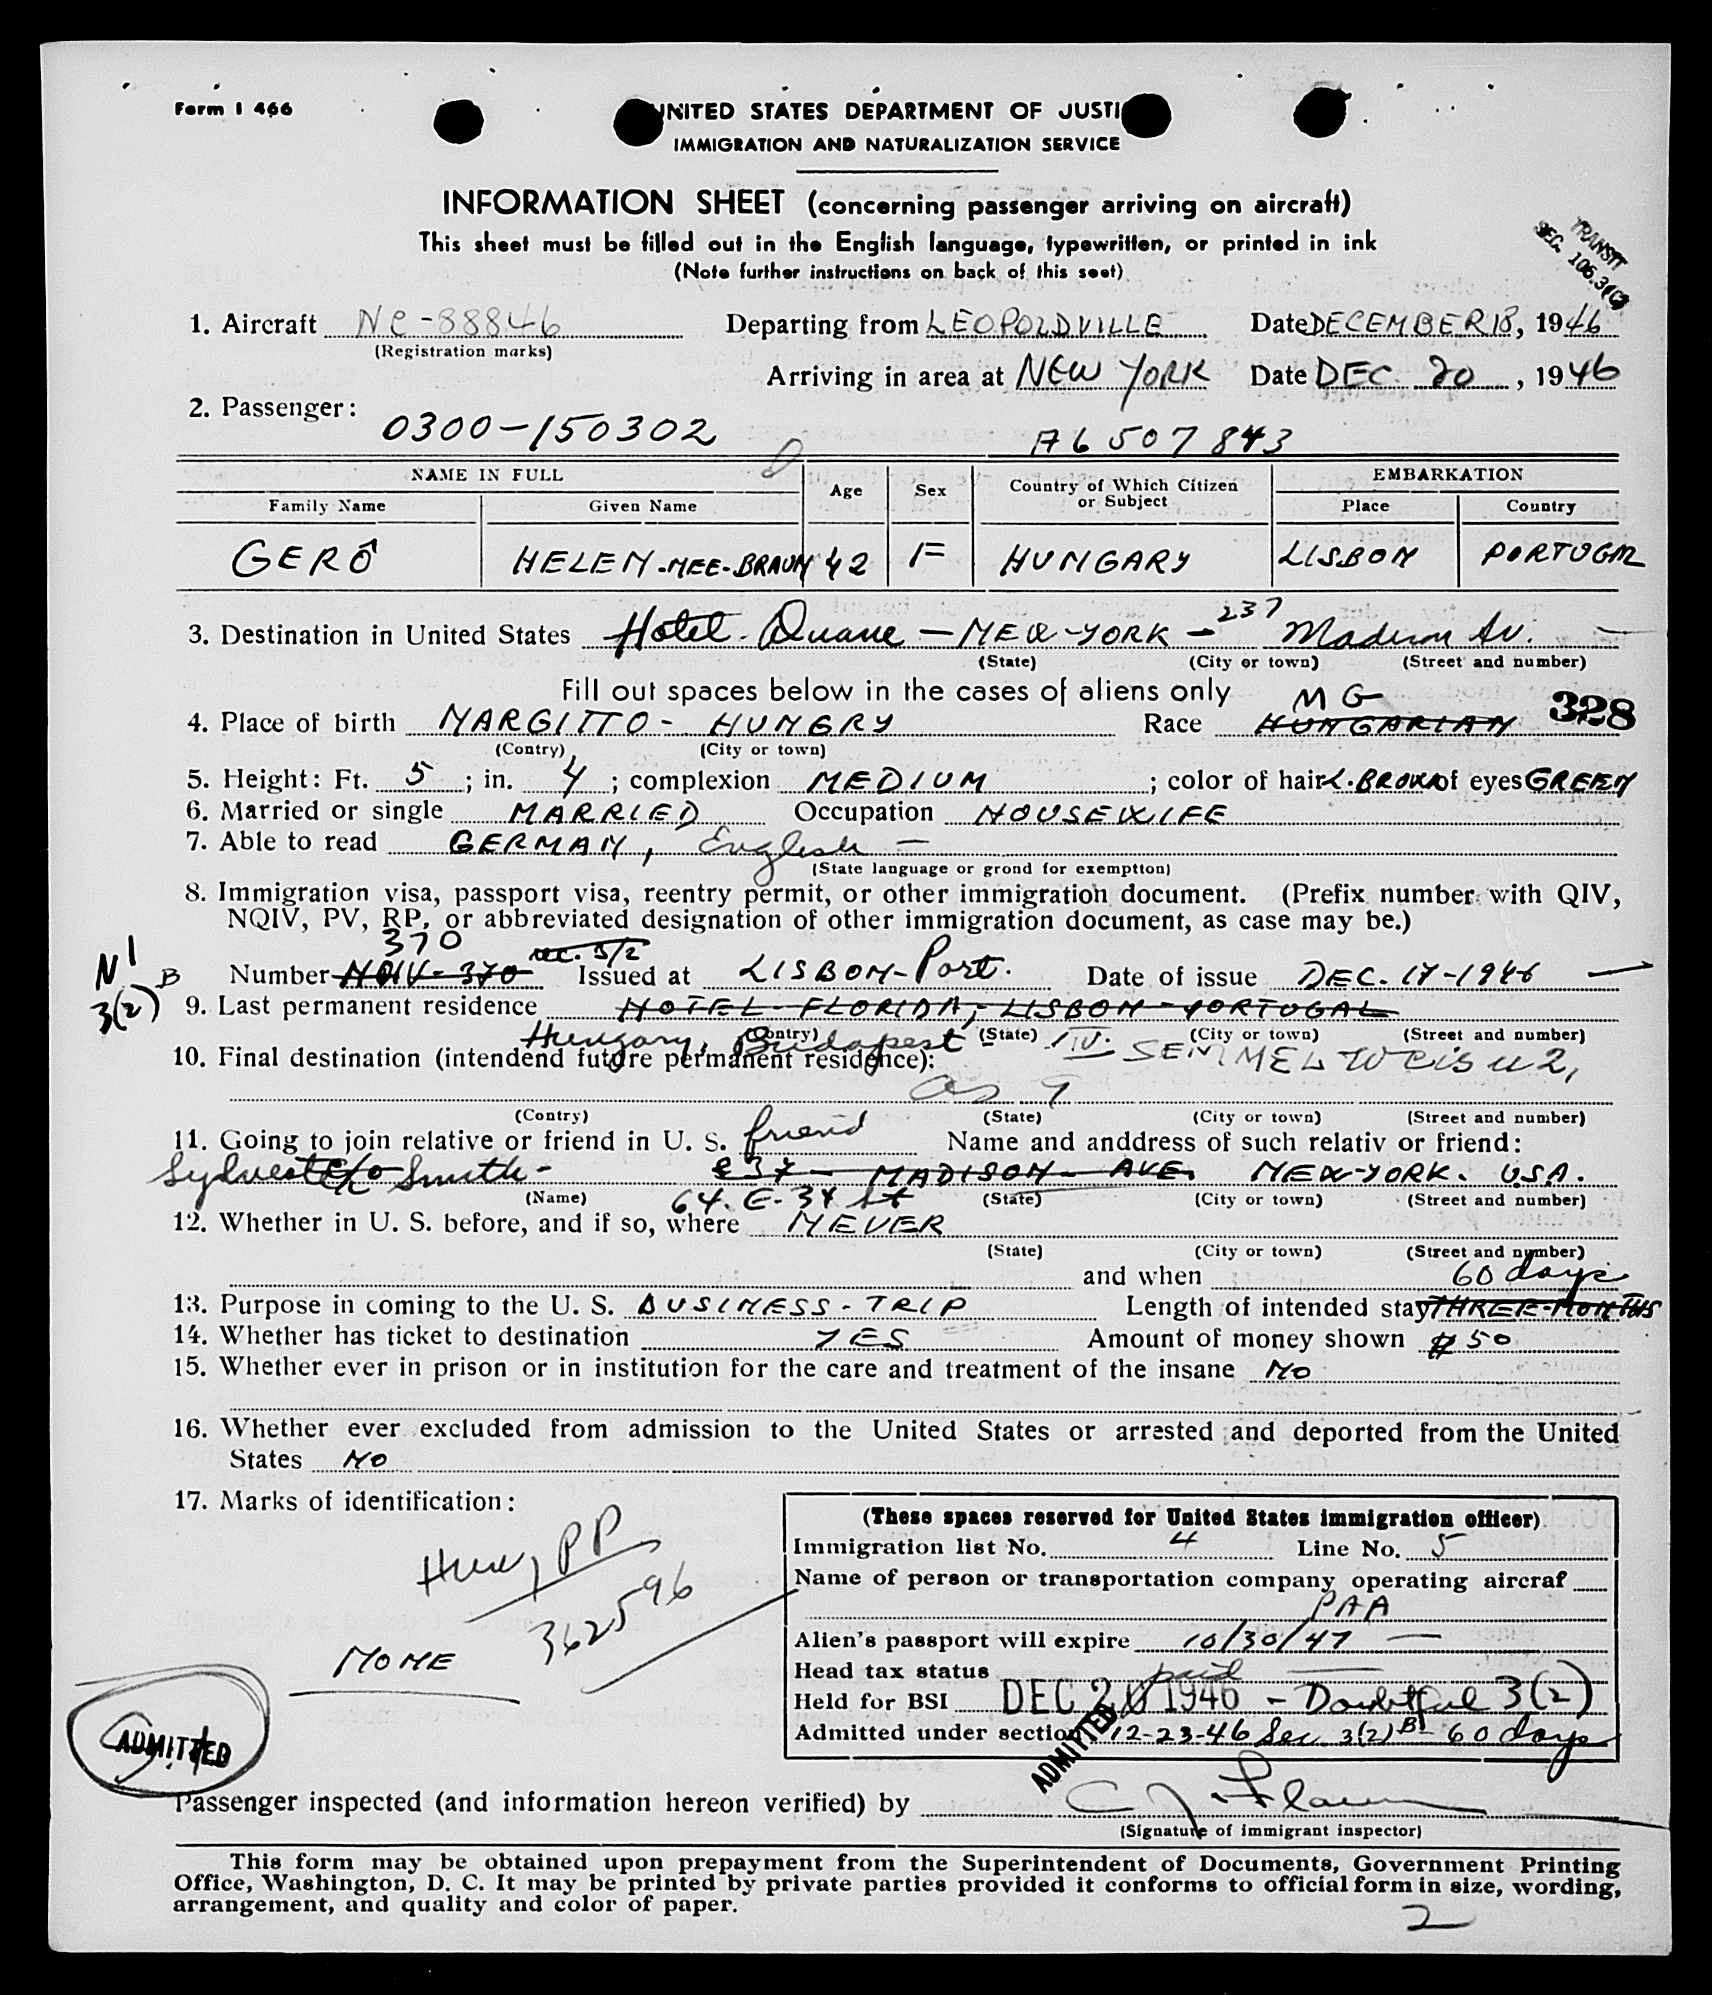 Form I 466
UNITED STATES DEPARTMENT OF JUSTI
IMMIGRATION AND NATURALIZATION SERVICE
INFORMATION SHEET (concerning passenger arriving on aircraft)
This sheet must be filled out in the English language, typewritten, or printed in ink
(Note further instructions on back of this seet)
TRANSIT
SEC. 106.3(C)
1. Aircraft NC-88846 Departing from LEOPOLDVILLE Date DECEMBER 18, 1946
(Registration marks)
Arriving in area at NEW YORK Date DEC. 20, 1946
2. Passenger:
0300-150302 A6 507 843
NAME IN FULL Age Sex Country of Which Citizen or Subject EMBARKATION
Family Name Given Name Place Country
GERÔ HELEN-NEE-BRAUN 42 F HUNGARY LISBON PORTUGAL
3. Destination in United States Hotel. Duane - NEW-YORK - 237 Madison Av.
(State) (City or town) (Street and number)
Fill out spaces below in the cases of aliens only
MG 328
4. Place of birth MARGITTO - HUNGRY Race HUNGARIAN
(Contry) (City or town)
5. Height: Ft. 5; in. 4; complexion MEDIUM; color of hair L. BROWN of eyes GREEN
6. Married or single MARRIED Occupation HOUSEWIFE
7. Able to read GERMAN, English -
(State language or grond for exemptton)
8. Immigration visa, passport visa, reentry permit, or other immigration document. (Prefix number with QIV,
NQIV, PV, RP, or abbreviated designation of other immigration document, as case may be.)
370 sec. 3/2
N1 B
3(2)
Number NQIV-370 Issued at LISBON-Port. Date of issue DEC. 17-1946
9. Last permanent residence HOTEL-FLORIDA,-LISBON-PORTUGAL
(Contry) (State) (City or town) (Street and number)
Hungary, Budapest - IV. SEMMELWEIS U 2,
10. Final destination (intendend future permanent residence):
as 9
(Contry) (State) (City or town) (Street and number)
11. Going to join relative or friend in U. S. friend Name and anddress of such relativ or friend:
Sylvester Smith - 237 - MADISON - AVE. NEW-YORK. USA.
(Name) 64. E. 34 St (State) (City or town) (Street and number)
12. Whether in U. S. before, and if so, where NEVER
(State) (City or town) (Street and number)
and when
60 days
13. Purpose in coming to the U. S. BUSINESS-TRIP Length of intended stay THREE-MONTHS
14. Whether has ticket to destination YES Amount of money shown $ 50
15. Whether ever in prison or in institution for the care and treatment of the insane NO
16. Whether ever excluded from admission to the United States or arrested and deported from the United
States NO
17. Marks of identification:
Hung PP
362596
NONE
(These spaces reserved for United States immigration officer)
Immigration list No. 4 Line No. 5
Name of person or transportation company operating aircraf
PAA
Alien's passport will expire 10/30/47
Head tax status paid
Held for BSI DEC 20 1946 - Doubtful 3(2)
Admitted under section 12-23-46 Sec. 3(2) B 60 days
ADMITTED
ADMITTED
Passenger inspected (and information hereon verified) by
(Signature of immigrant inspector)
This form may be obtained upon prepayment from the Superintendent of Documents, Government Printing
Office, Washington, D. C. It may be printed by private parties provided it conforms to official form in size, wording,
arrangement, and quality and color of paper.
2